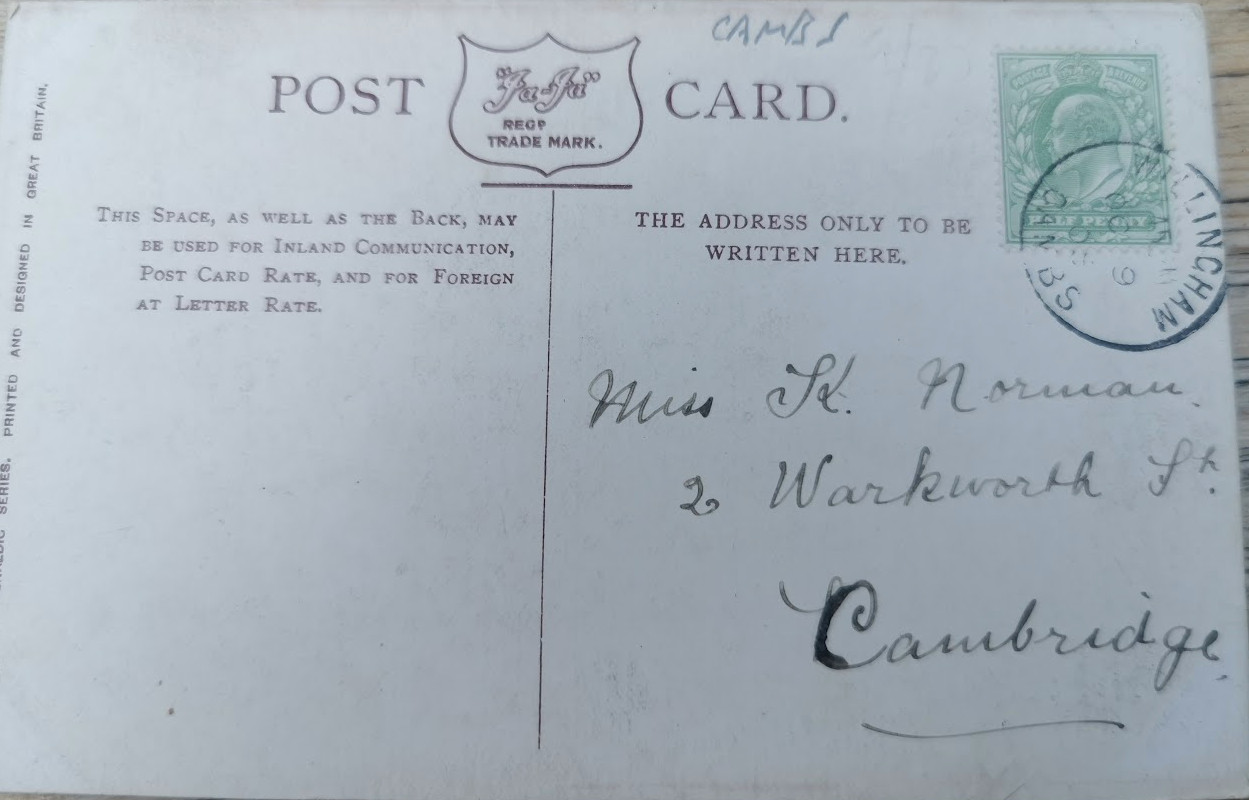 CAMBS
POST CARD.
"Ja-Ja"
REGD
TRADE MARK.
PRINTED AND DESIGNED IN GREAT BRITAIN.
SERIES.
THIS SPACE, AS WELL AS THE BACK, MAY
BE USED FOR INLAND COMMUNICATION,
POST CARD RATE, AND FOR FOREIGN
AT LETTER RATE.
THE ADDRESS ONLY TO BE
WRITTEN HERE.
POSTAGE REVENUE
HALF PENNY
WILLINGHAM
CAMBS
Miss K. Norman.
2 Warkworth St.
Cambridge.